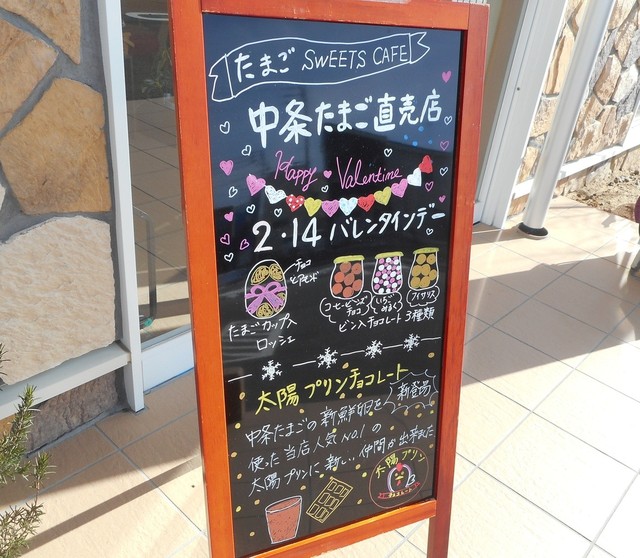 たまご SWEETS CAFE
中条たまご直売店
Happy Valentine
2・14 バレンタインデー
チョコ
とアモンド
コーヒービーンズ
チョコ
いちご
みるく
アイリッス
たまごカップ入
ロッシェ
ビン入チョコレート 3種類
太陽プリンチョコレート
新登場
中条たまごの新鮮卵を
使った当店人気No.1の
太陽プリンに新しい仲間が出来ました
太陽プリン
チョコレート